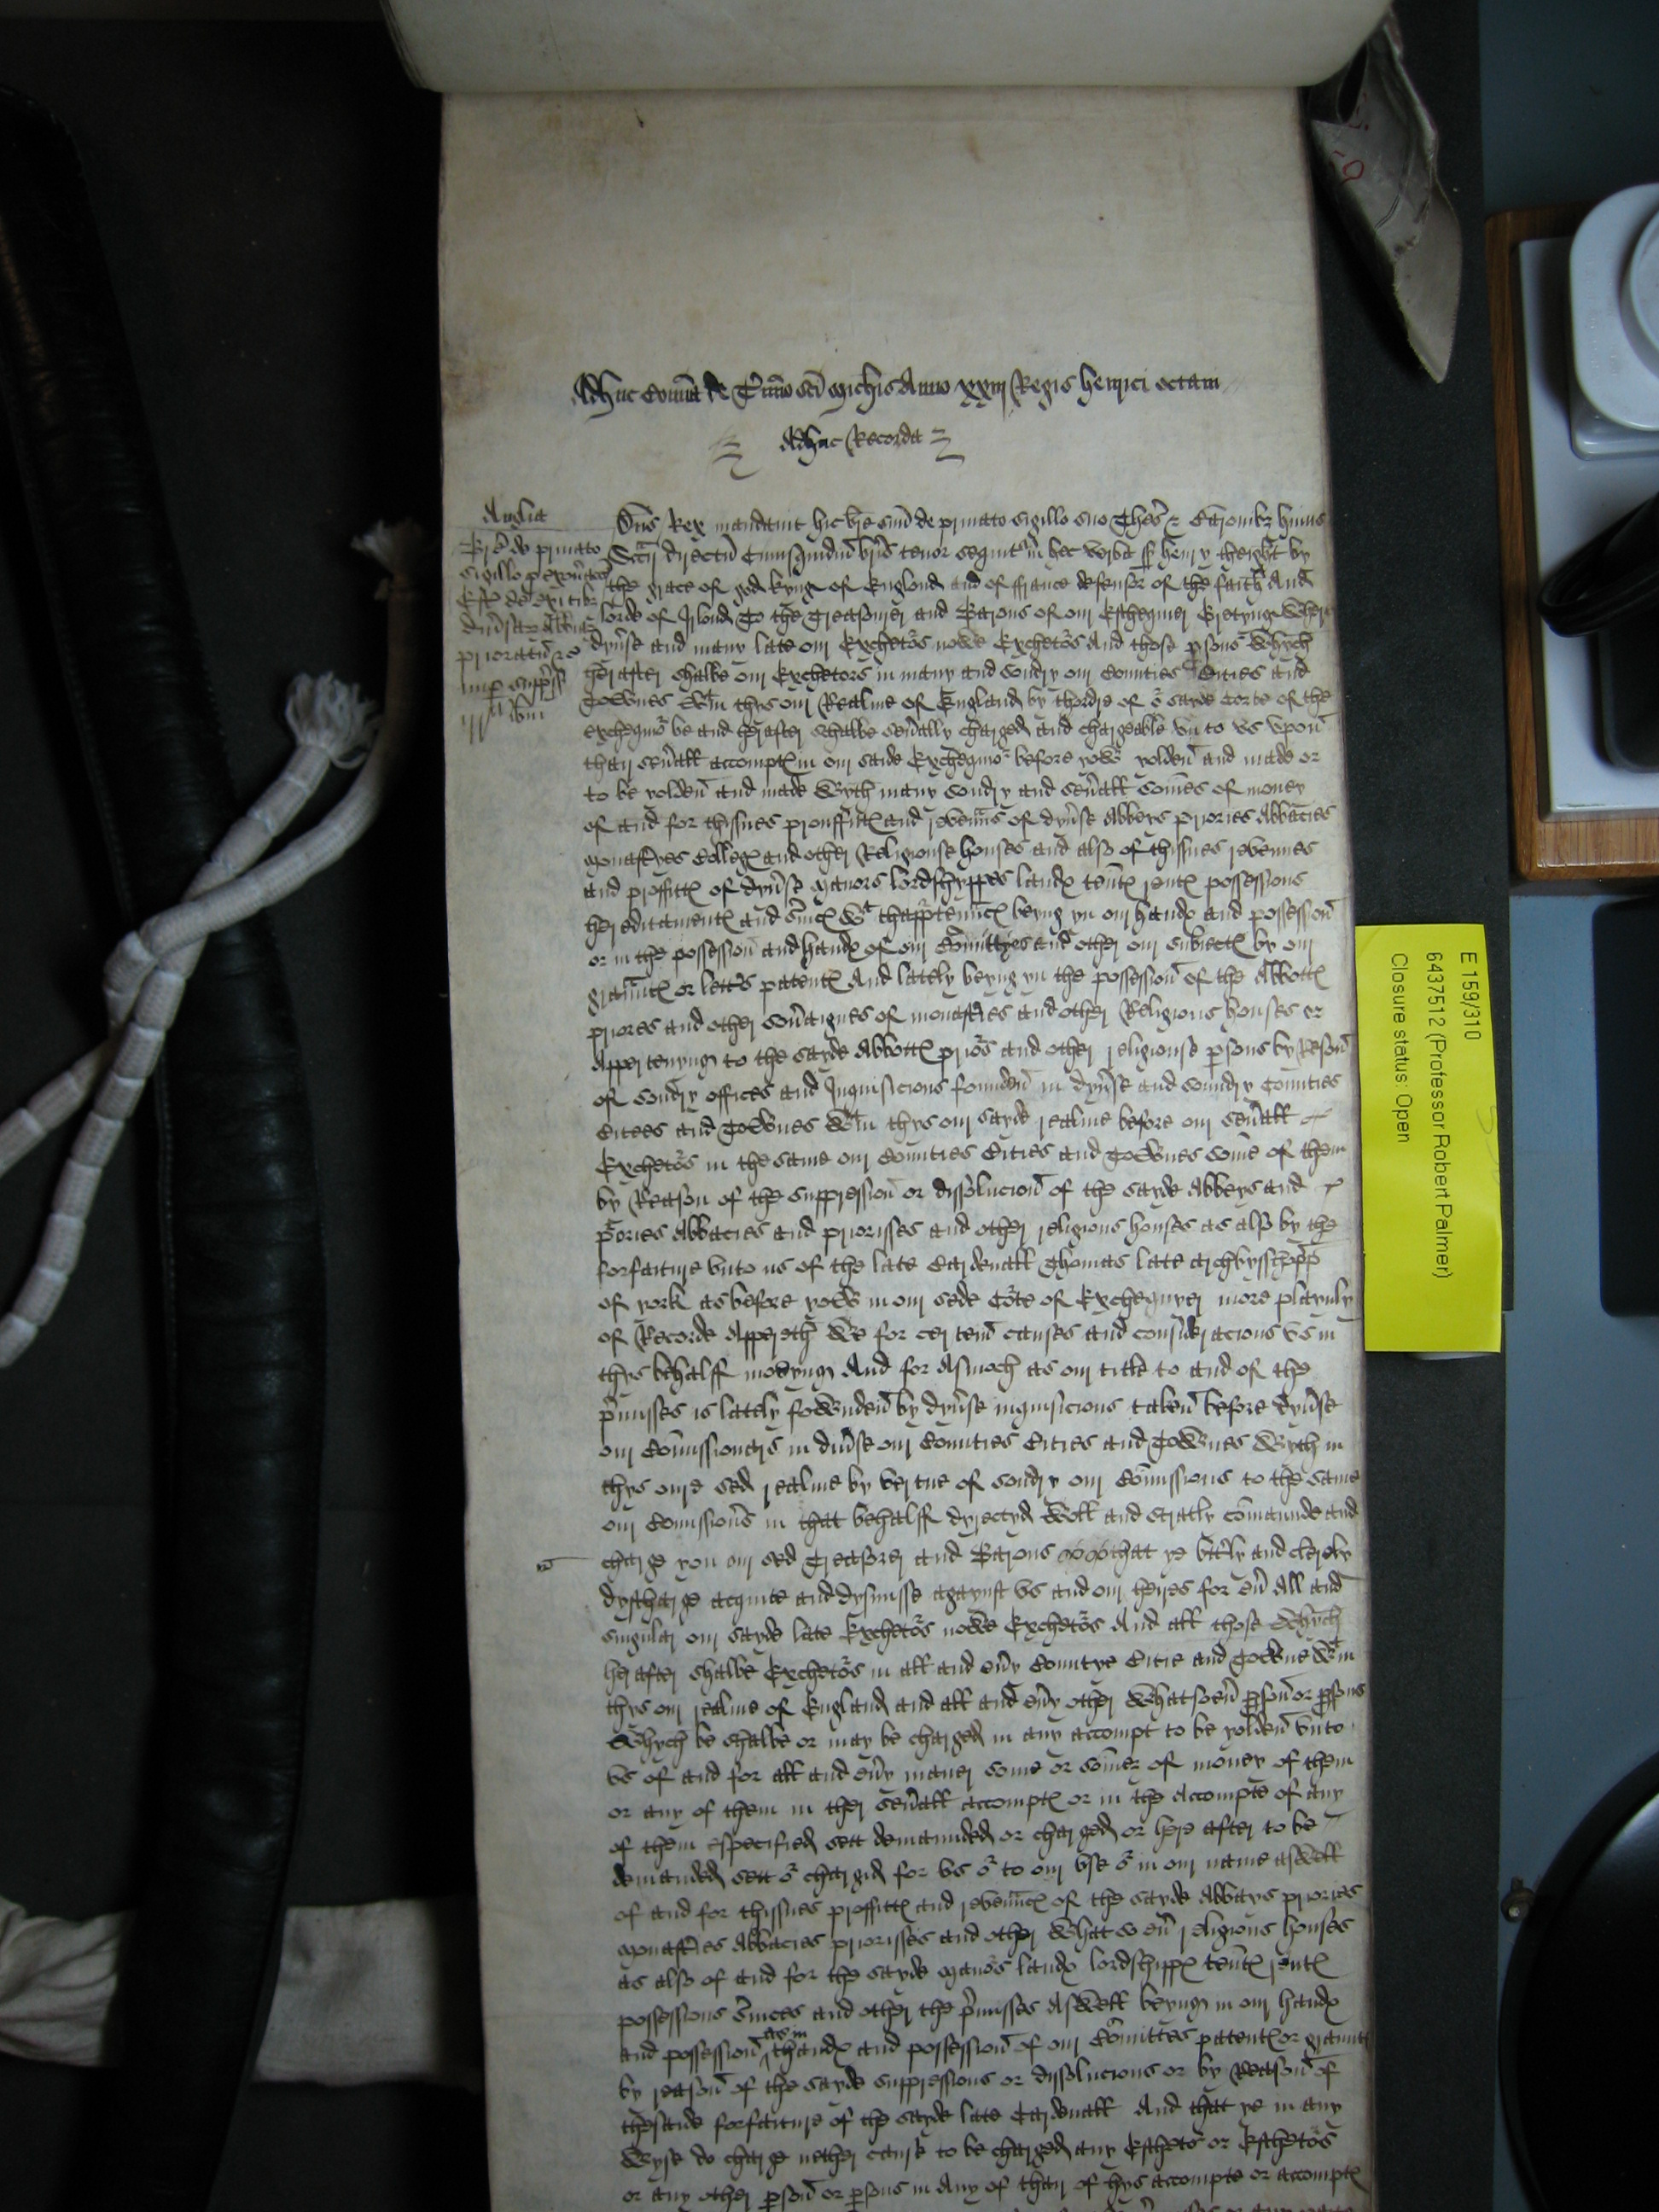 Adhuc Comunia de Termino sci Michis Anno xxiij Regis henrici octavi
Adhuc Recorda
Anglia
Bre de privato
sigillo
Dns Rex mandavit hic bre suu de privato sigillo suo Thes & Baronibz huius
Sccij directu Cuiusquidem bris tenor sequitr in hec verba ss henry theight by
the grace of god kyng of England and of ffrance defensor of the faith And
lorde of Irlond To the Treasourer and Barons of our Eschequier Gretyng Where
dyvse and many late our Exchetors nowe Exchetors And those psons Whych
herafter shalbe our Exchetors in many and sondry our Counties Cities and
Townes wtin thys our Realme of England by thordre of or sayde Corte of the
exchequior be and herafter schalbe sevally charged and chargeable vn to vs vpon
thair sevall accompt in our saide Exchequior before yow yolden and made or
to be yolden and made Wyth many sondry and sevall somes of money
of and for thissues prouffitt and revenus of dyvse Abbeys priories Abbacies
monastyes Collegs and other Religiouse houses and also of thissues revenues
and proffitts of dyvse manors lordschyppes lands tents rents possessions
hereditaments and svices wt thapptenncs beyng yn our hands and possession
or in the possession and hands of our Comittyes and other our subiects by our
graunts or letts patents And lately beyng yn the possession of the Abbotts
priores and other sovaignes of monasties and other Religious houses or
Apperteynyng to the sayde Abbotts priors and other religiouse psons by Reson
of sondry offices and Inquisicions founden in dyvse and soundry Counties
Citees and Townes wtin thys our sayde realme before our sevall
Exchetors in the same our Counties Cities and Townes some of them
by Reason of the suppression or dissolucion of the sayde Abbeys and
pories Abbacies and priorisses and other religious houses as also by the
forfaiture vnto us of the late Cardenall Thomas late archbysshopp
of york as before yow in our sede Cote of Exchequyer more playnly
of Recorde Appereth We for certen causes and consideracions vs in
thys behalff movyng And for Asmoch as our title to and of the
pmisses is lately fownden by dyvse inquisicions taken before dyvse
our Comissioners in divse our Counties Cities and Townes Wyth in
thys oure sed realme by vertue of sondry our Comissions to the same
our Comissions in that behalff dyrectyd Woll and straitly comaunde and
charge you our sed Treasorer and Barons that ye vttly and clerely
dyscharge acquite and dysmisse agaynst vs and our heyres for ev All and
singular our sayde late Exchetors nowe Exchetors And all those Whych
herafter shalbe Exchetors in all and evy Countye Citie and Towne wtin
thys our realme of England and all and evy other Whatsoev pson or psons
Whych be shalbe or may be charged in any accompt to be yolden vnto
vs of and for all and evy maner some or somez of money of them
or any of them in ther sevall accompts or in the Accompte of any
of them especified sett demaunded or charged or here after to be
demanded sett or chargid for vs or to our vse or in our name aswell
of and for thissues proffitts and revenuez of the sayde Abbays priories
monasties Abbacies priorisses and other What so ev religious houses
as also of and for the sayde manors lands lordschypps tents rents
possessions svices and other the pmisses Aswell beyng in our hands
and possession as in thands and possession of our Comittes patents or graunts
by reason of the sayde suppressions or dissolucions or by Reason of
thesaide forfaiture of the sayde late Cardenall And that ye in any
Wyse do charge nether cause to be charged any Eschetor or Eschetors
or any other pson or psons in Any of thair of hys accompte or accompts
E 159/310
6437512 (Professor Robert Palmer)
Closure status: Open